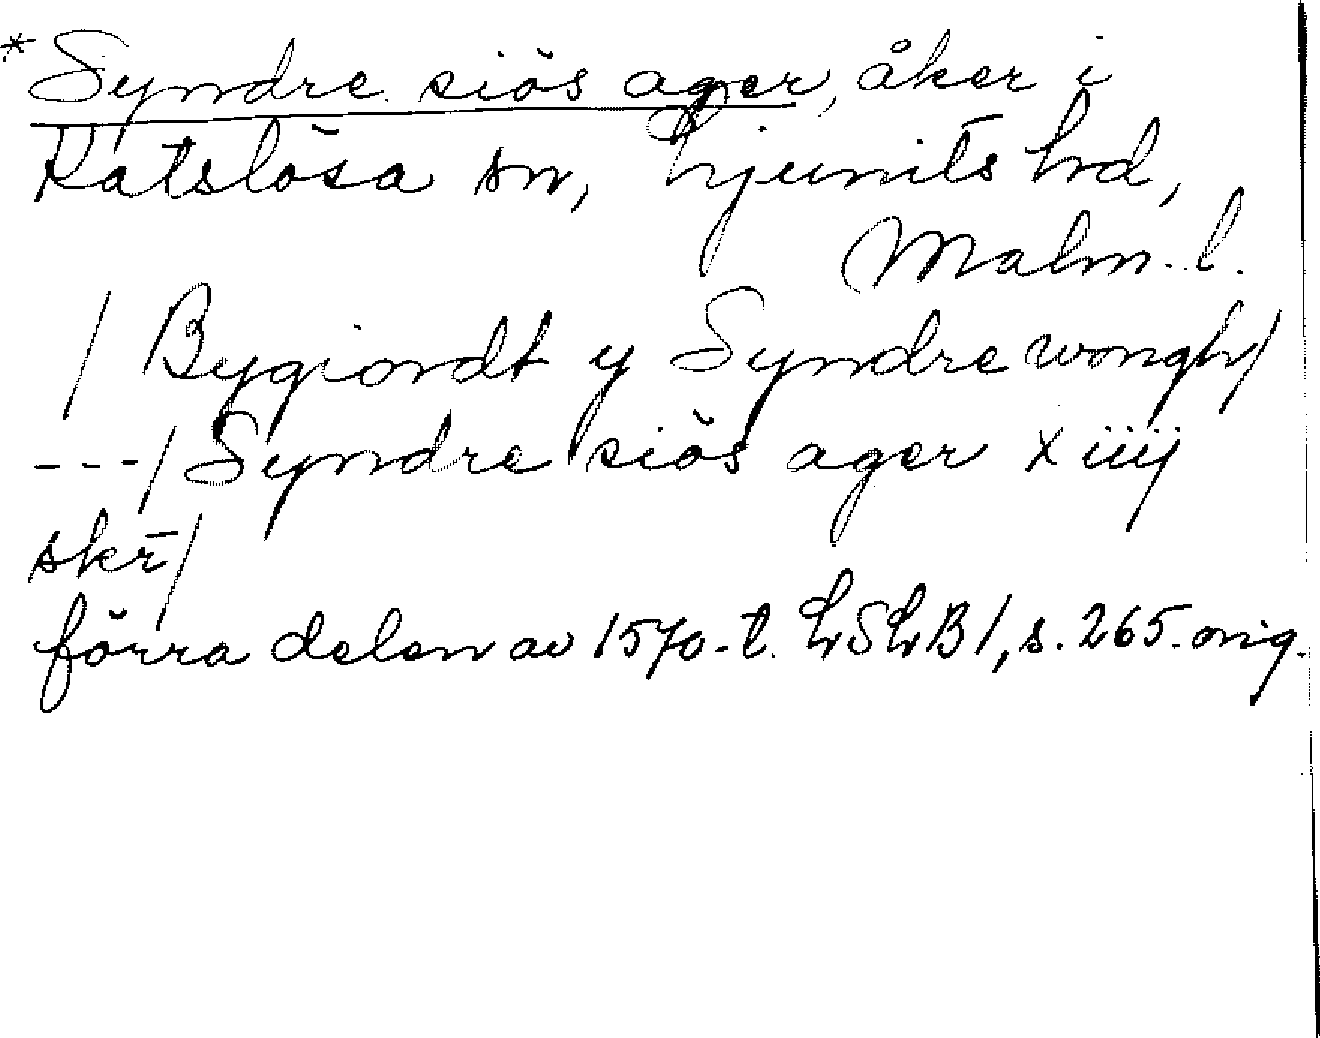 *Syndre siös ager, åker i
Katslösa sn, Ljunits hd,
Malm. l.
/ Bygiordt y Syndre wongh/
---/ Syndre siös ager x iiij
skr̄/
förra delen av 1570-t. LSLB 1, s. 265. orig.